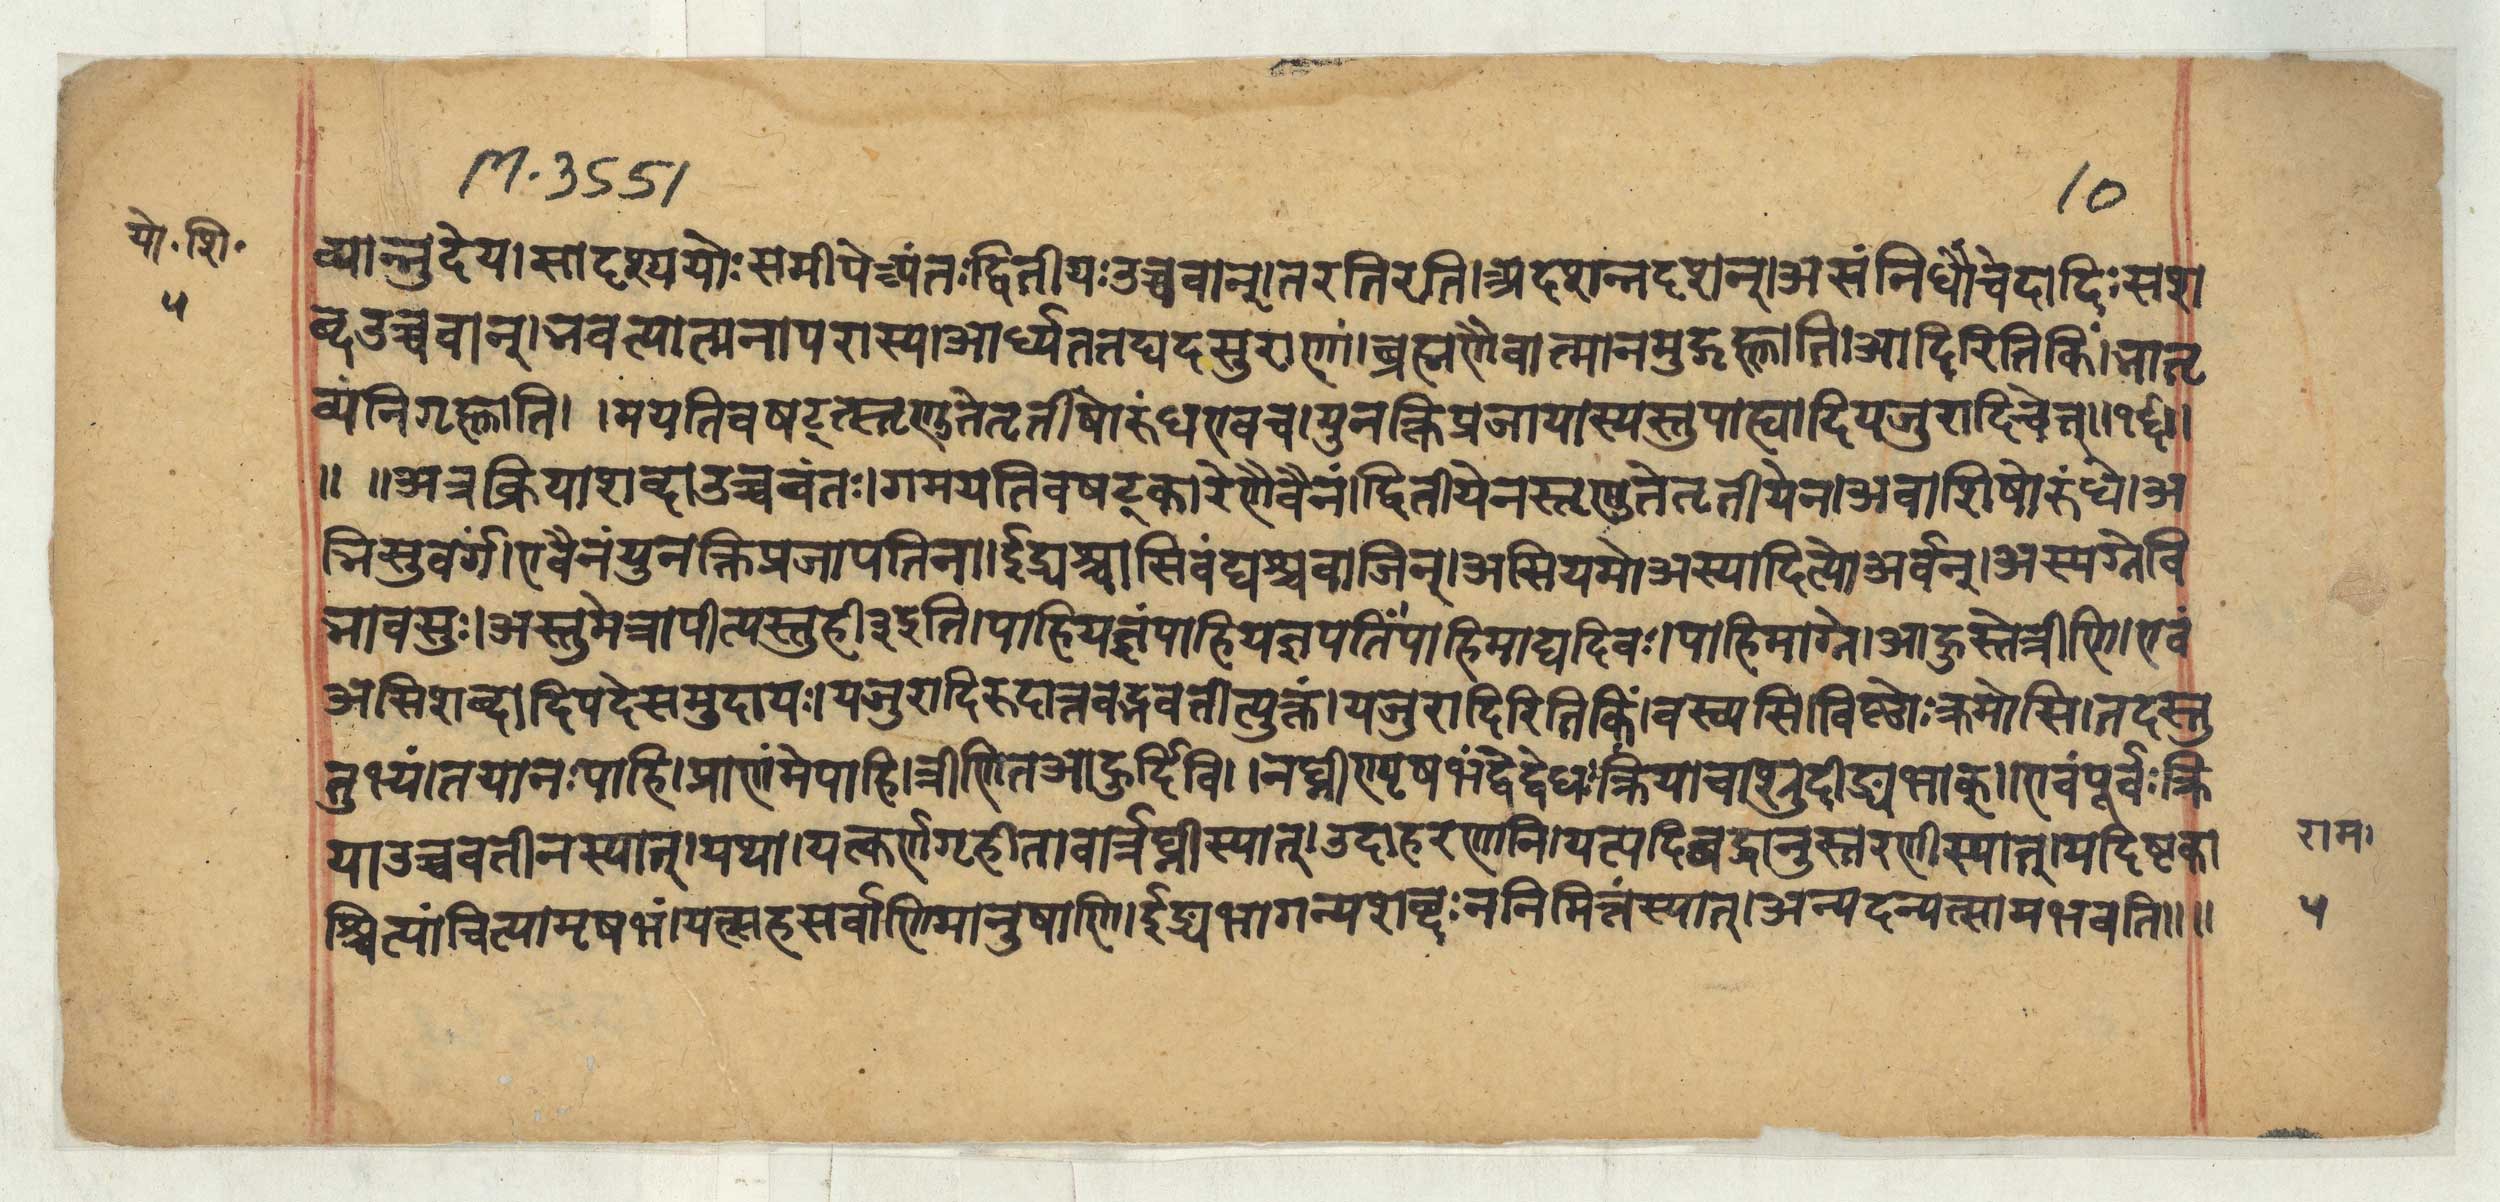 M. 3551
10
यो. शि.
५
व्यान्नुदेय।सादृश्ययोःसमीपेच्प्यंतःद्वितीयःउच्चवान्।तरतिरति।अदशन्नदृशन्।असंनिधौचेदादिःसश
ब्दउच्चवान्।भवत्यात्मनापरास्य।आर्ध्यततद्यदसुराणां।ब्रह्मणैवात्मानमुद्गृह्णाति।आदिरितिकिं।भ्रातृ
व्यंनिगृह्णाति। ।मयतिवषट्तस्तृणुतेतृतीषोरूंधएवच।युनक्तिप्रजायास्यस्तुपाह्यादियजुरादिचेत्॥१६॥
॥ ॥अत्रक्रियाशब्दाउच्चवंतः।गमयतिवषट्कारेणैवैनं।द्वितीयेनस्तृणुतेतृतीयेन।अवाशिषोरूंध्ये।अ
भिसुवर्ग।एवैनंयुनक्तिप्रजापतिना।ईड्यश्चासिवंद्यश्चवाजिन्।असियमोअस्यादित्योअर्वन्।अस्यग्नेवि
भावसुः।अस्तुमेत्रापीत्यस्तुही३इति।पाहियज्ञंपाहियज्ञपतिंपाहिमाद्यदिवः।पाहिमाग्ने।आहुस्तेत्रीणि।एवं
असिशब्दादिपदेसमुदायः।यजुरादिरूदात्तवद्भवतीत्युक्तं।यजुरादिरितिकिं।वस्व्यसि।विष्णोःक्रमोसि।तदस्तु
तुभ्यं।तयानःपाहि।प्राणंमेपाहि।त्रीणितआहुर्दिवि। ।नघ्नीण्यृषभंद्वेद्वेघःक्रियाचाश्नुदीड्यभाक्॥एवंपूर्वःक्रि
याउच्चवतीनस्यात्।यथा।यत्कर्णगृहीतावार्त्रघ्नीस्यात्।उदाहरणानि।यत्पदिबद्धानुस्तरणीस्यात्।यदिष्टका
श्चित्यांचित्यामृषभं।यत्सहसर्वाणिमानुषाणि।ईड्यभागन्यशब्दःननिमित्तंस्यात्।अन्यदन्यत्सामभवति॥॥
राम।
५